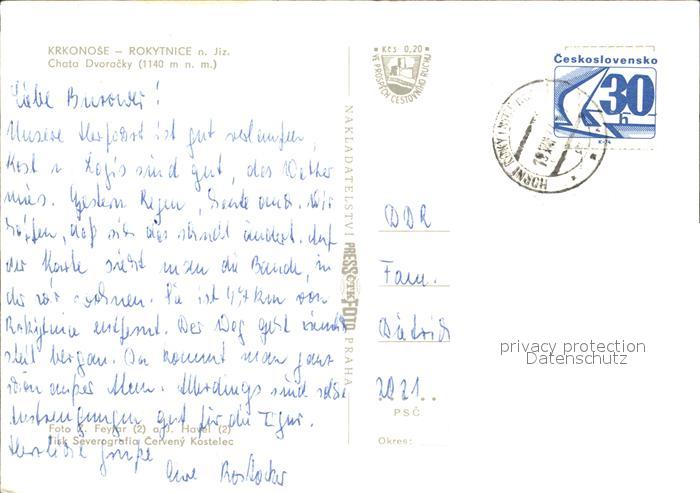 KRKONOŠE – ROKYTNICE n. Jiz.
Chata Dvoračky (1140 m n. m.)
Kčs 0,20
VE PROSPĚCH CESTOVNÍHO RUCHU
Československo
30
h
HORNÍ
Liebe
Unsere Herfahrt ist gut verlaufen,
Kost u. Logis sind gut, das Wetter
mies. Gestern Regen, heute auch. Wir
hoffen, daß sich das schnell ändert. Auf
der Karte sieht man die Baude, in
der wir wohnen. Sie ist km von
Rokytnice entfernt. Der Weg geht
steil bergan. Da kommt man ganz
schön außer Atem. Allerdings sind solche
Anstrengungen gut für die Figur.
Herzliche Grüße
NAKLADATELSTVÍ PRESSFOTO PRAHA
DDR
Fam.
Dietrich
PSČ
Okres:
Foto K. Feyfar (2) a J. Havel (2)
Tisk Severografia Červený Kostelec
privacy protection
Datenschutz